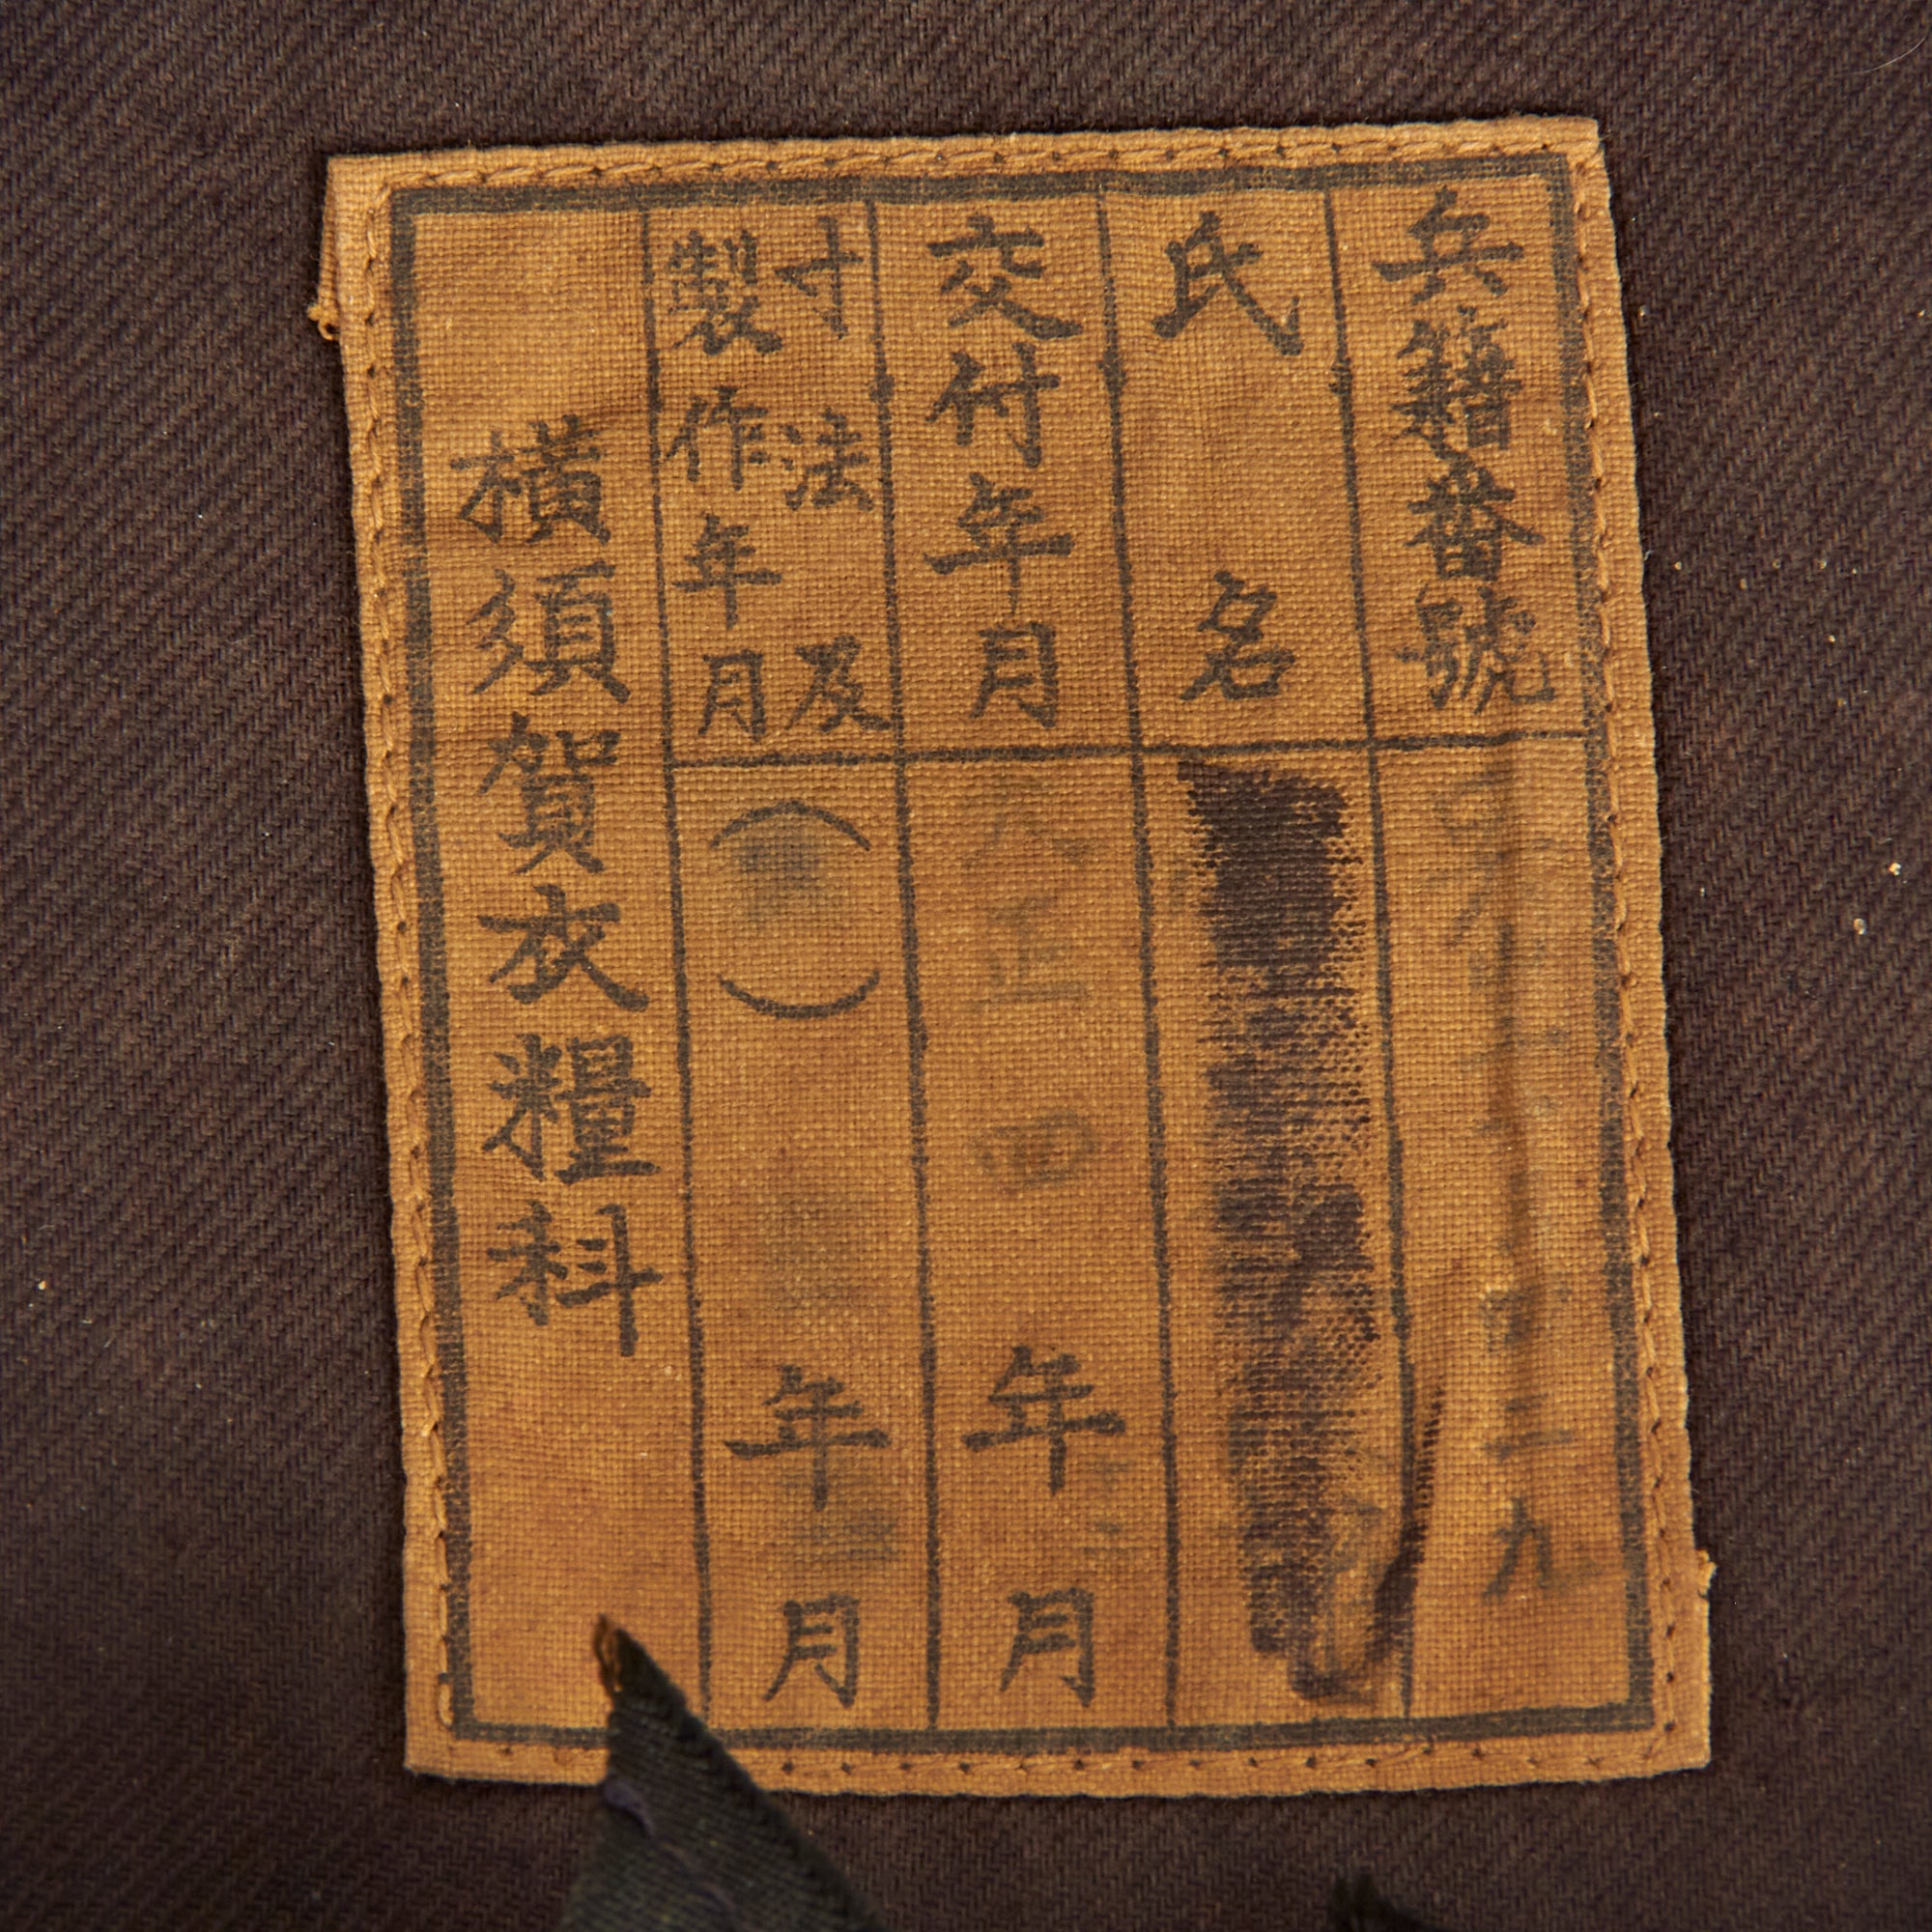 兵籍番號
氏名
交付年月 大正四年十二月
寸法及
製作年月 ( ) 年 月
横須賀衣糧科